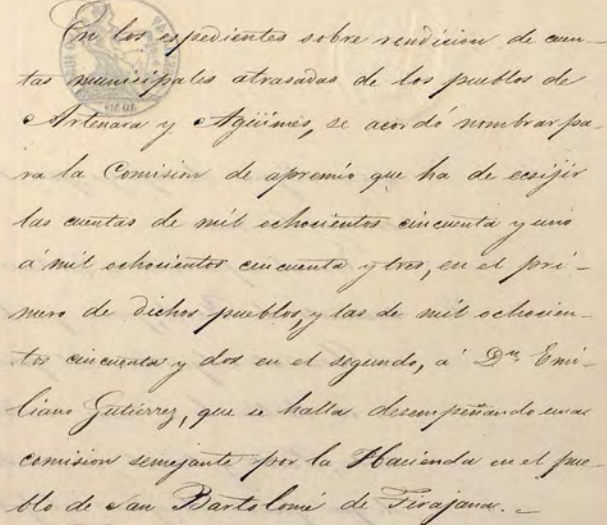 En los espedientes sobre rendicion de cuen-
tas municipales atrasadas de los pueblos de
Artenara y Agüimes, se acordó nombrar pa-
ra la Comision de apremio que ha de ecsijir
las cuentas de mil ochocientos cincuenta y uno
á mil ochocientos cincuenta y tres, en el pri-
mero de dichos pueblos, y las de mil ochocien-
tos cincuenta y dos en el segundo, a' Dn. Emi-
liano Gutierrez, que se halla desempeñando una
comision semejante por la Hacienda en el pue-
blo de San Bartolomé de Tirajana._